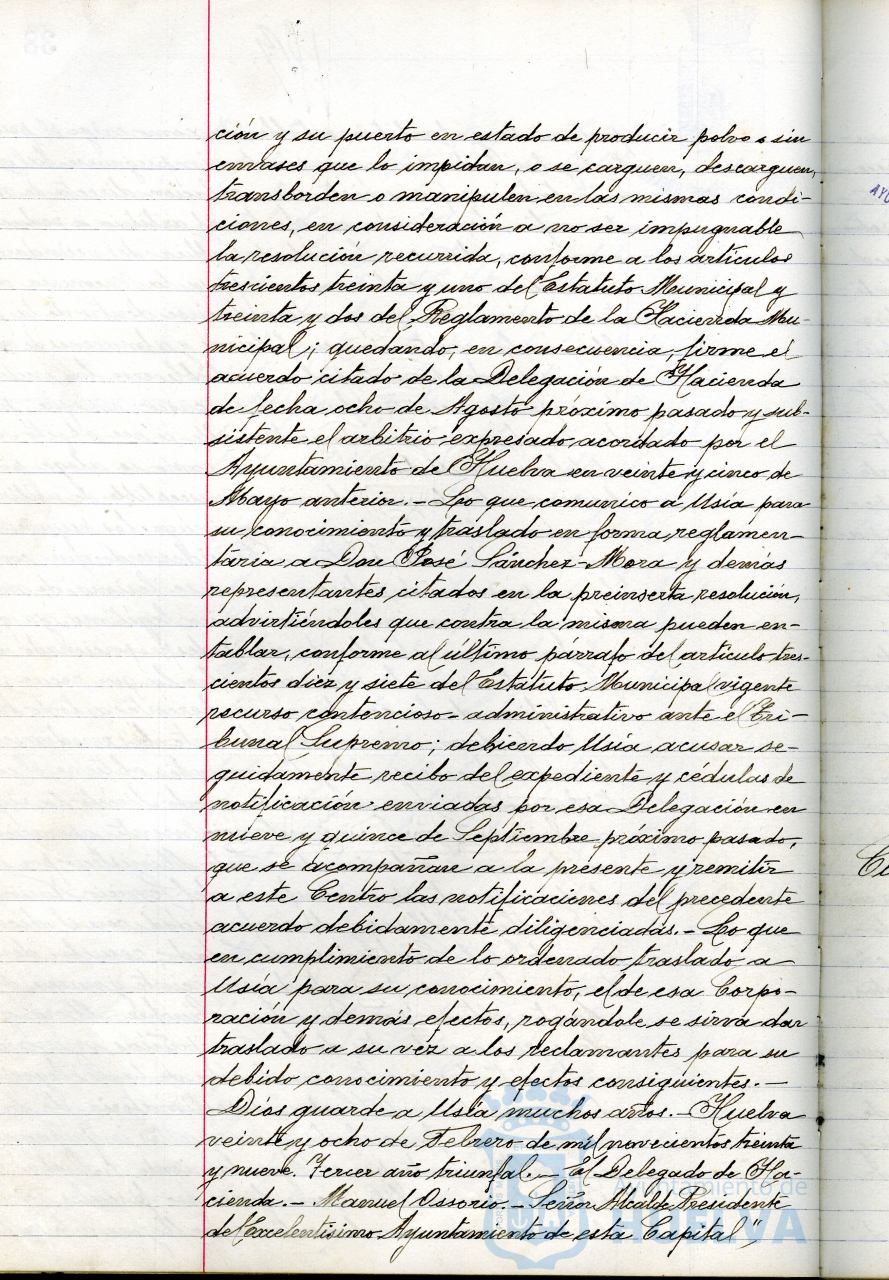 ción y su puerto en estado de producir polvo o sin
envases que lo impidan, o se carguen, descarguen,
transborden o manipulen en las mismas condi-
ciones, en consideración a no ser impugnable
la resolución recurrida, conforme a los artículos
trescientos treinta y uno del Estatuto Municipal y
treinta y dos del Reglamento de la Hacienda Mu-
nicipal; quedando, en consecuencia, firme el
acuerdo citado de la Delegación de Hacienda
de fecha ocho de Agosto próximo pasado y sub-
sistente el arbitrio expresado, acordado por el
Ayuntamiento de Huelva en veinte y cinco de
Mayo anterior.- Lo que comunico a Usía para
su conocimiento y traslado en forma reglamen-
taria a Don José Sánchez-Mora y demás
representantes citados en la preinserta resolución,
advirtiéndoles que contra la misma pueden en-
tablar, conforme al último párrafo del artículo tres-
cientos diez y siete del Estatuto Municipal vigente
recurso contencioso-administrativo ante el Tri-
bunal Supremo; debiendo Usía acusar se-
guidamente recibo del expediente y cédulas de
notificación enviadas por esa Delegación en
nueve y quince de Septiembre próximo pasado,
que se acompañan a la presente y remitir
a este Centro las notificaciones del precedente
acuerdo debidamente diligenciadas.- Lo que
en cumplimiento de lo ordenado traslado a
Usía para su conocimiento, el de esa Corpo-
ración y demás efectos, rogándole se sirva dar
traslado a su vez a los reclamantes para su
debido conocimiento y efectos consiguientes.-
Dios guarde a Usía muchos años.- Huelva
veinte y ocho de Febrero de mil novecientos treinta
y nueve. Tercer año triunfal.- El Delegado de Ha-
cienda.- Manuel Ossorio.- Señor Alcalde Presidente
del Excelentísimo Ayuntamiento de esta Capital",
Ayuntamiento de
HUELVA